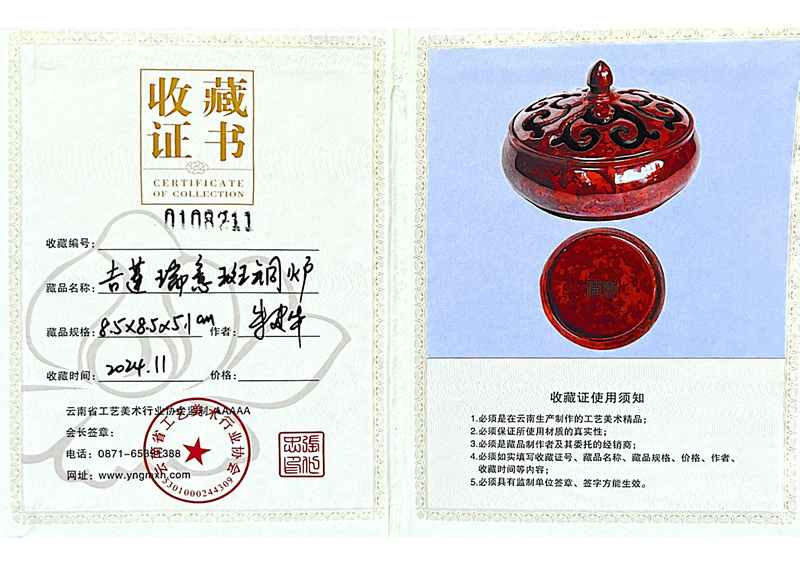 收藏
证书
CERTIFICATE
OF COLLECTION
0108711
收藏编号:
藏品名称: 吉莲瑞意斑铜炉
藏品规格: 8.5×8.5×5.1cm 作者:
收藏时间: 2024.11 价格:
云南省工艺美术行业协会监制:AAAAA
会长签章:
电话: 0871-65 388
网址: www.yngmxh.com
云南省工艺美术行业协会
5301000244309
收藏证使用须知
1.必须是在云南生产制作的工艺美术精品;
2.必须保证所使用材质的真实性;
3.必须是藏品制作者及其委托的经销商;
4.必须如实填写收藏证号、藏品名称、藏品规格、价格、作者、
收藏时间等内容;
5.必须具有监制单位签章、签字方能生效。